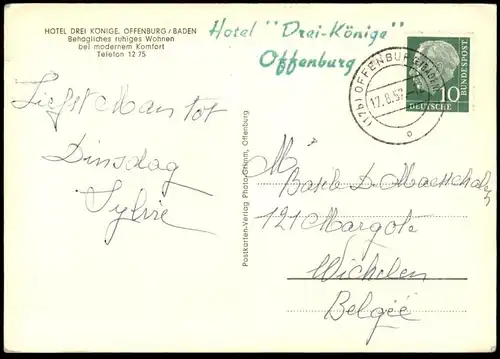 HOTEL DREI KÖNIGE, OFFENBURG/BADEN
Behagliches ruhiges Wohnen
bei modernem Komfort
Telefon 12 75
Hotel "Drei-Könige"
Offenburg
(17b) OFFENBURG
17.8.57
10
DEUTSCHE
BUNDESPOST
Liefst Mau tot
Dinsdag
Sylvie
Postkarten-Verlag Photo-Grimm, Offenburg
M
121 Margote
Wichelen
Belgëe